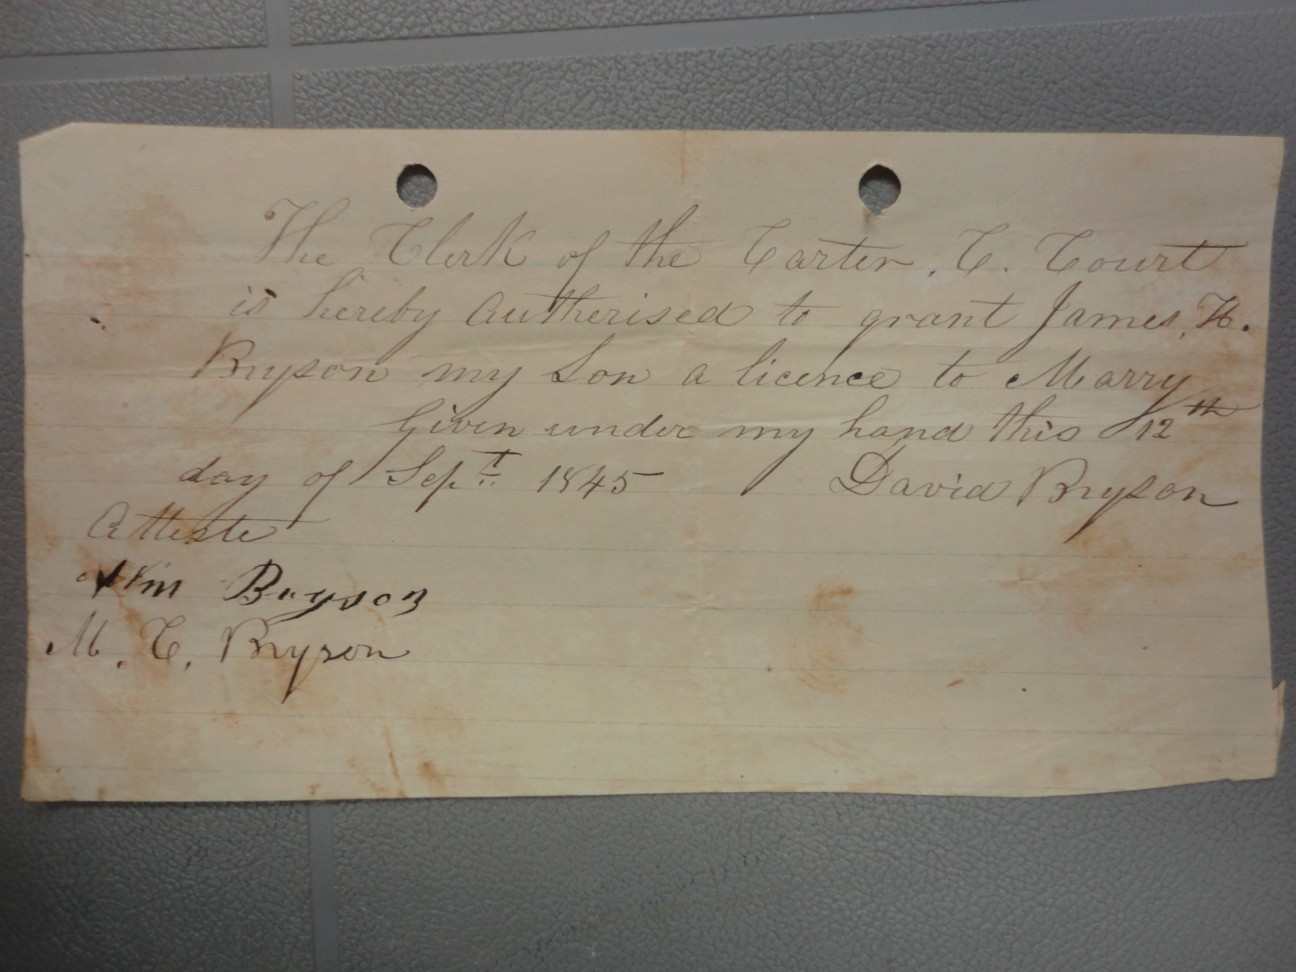 The Clerk of the Carter, C. Court
is hereby Autherised to grant James, H.
Bryson my Son a licence to Marry
Given under my hand this 12th
day of Sept 1845 David Bryson
Atteste
Wm Bryson
M. C. Bryson